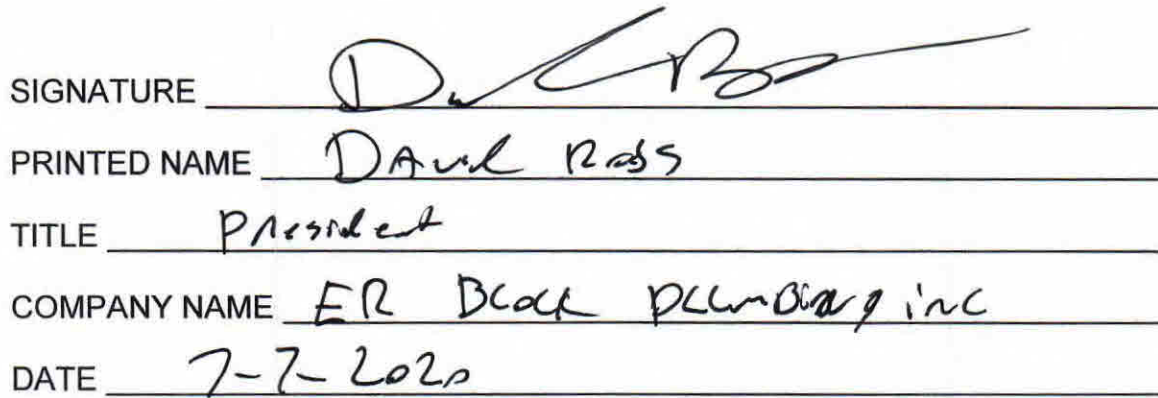 SIGNATURE
PRINTED NAME David Ross
TITLE President
COMPANY NAME ER Block Plumbing inc
DATE 7-7-2020